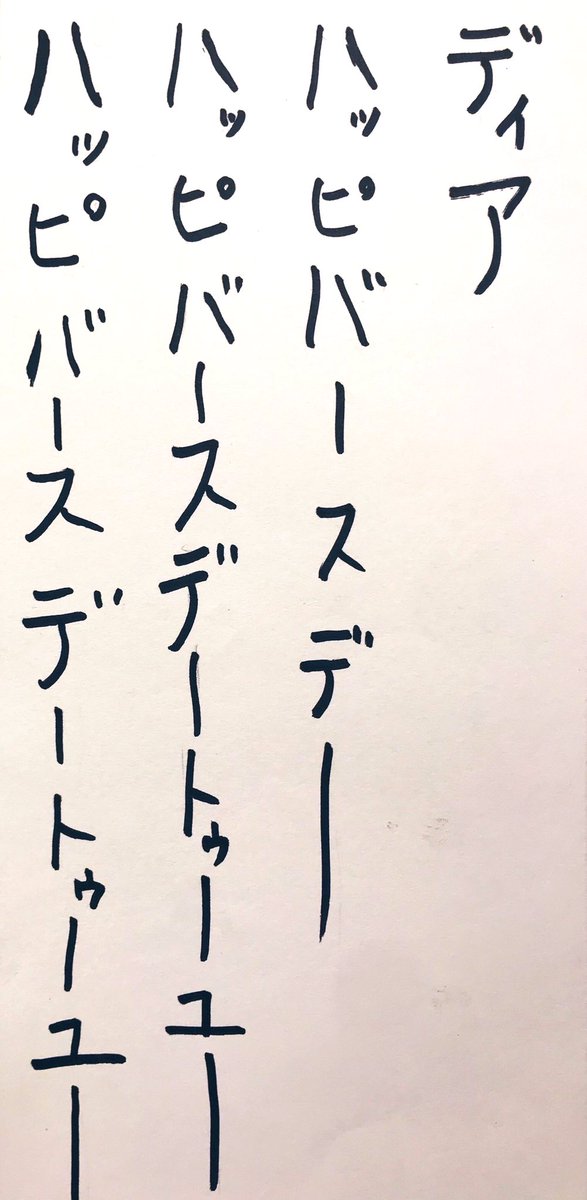 ディア
ハッピバースデー
ハッピバースデートゥーユー
ハッピバースデートゥーユー